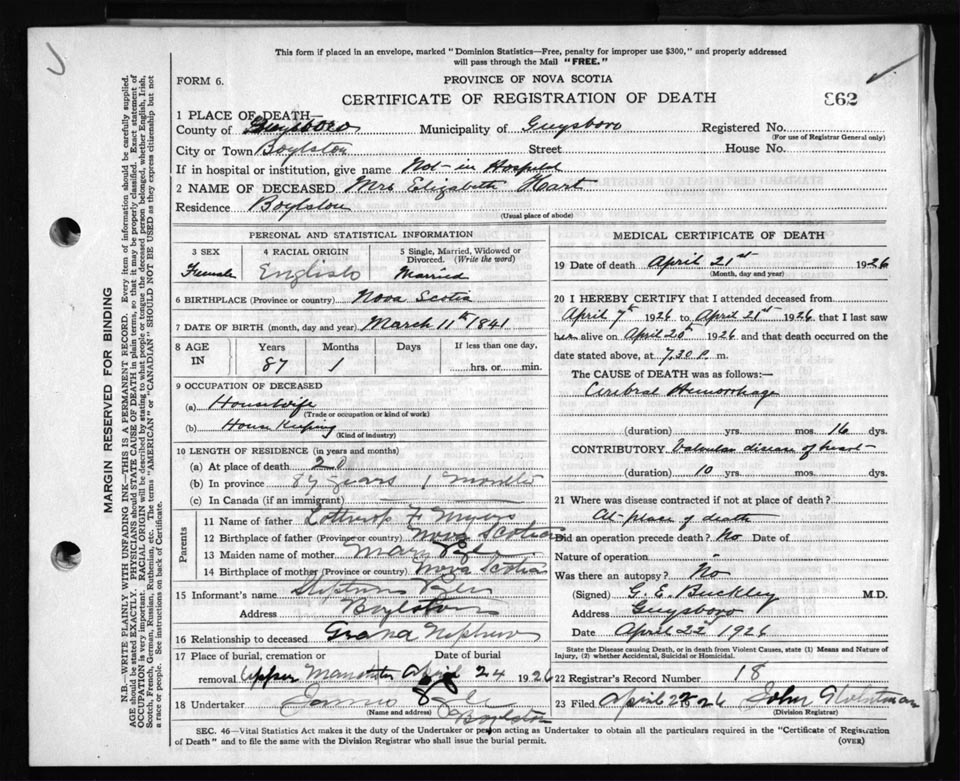 This form if placed in an envelope, marked "Dominion Statistics—Free, penalty for improper use $300," and properly addressed
will pass through the Mail "FREE."
FORM 6.
PROVINCE OF NOVA SCOTIA
CERTIFICATE OF REGISTRATION OF DEATH
362
MARGIN RESERVED FOR BINDING
N.B.—WRITE PLAINLY WITH UNFADING INK—THIS IS A PERMANENT RECORD. Every item of information should be carefully supplied.
AGE should be stated EXACTLY. PHYSICIANS should STATE CAUSE OF DEATH in plain terms, so that it may be properly classified. Exact statement of
OCCUPATION is very important. RACIAL ORIGIN will be described by stating to what people or tongue the deceased person belonged, whether English, Irish,
Scotch, French, German, Russian, Ruthenian, etc. The terms "AMERICAN" or "CANADIAN" SHOULD NOT BE USED as they express citizenship but not
a race or people. See instructions on back of Certificate.
1 PLACE OF DEATH—
County of Guysboro Municipality of Guysboro Registered No.
(For use of Registrar General only)
City or Town Boylston Street House No.
If in hospital or institution, give name Not in Hospital
2 NAME OF DECEASED Mrs Elizabeth Hart
Residence Boylston
(Usual place of abode)
PERSONAL AND STATISTICAL INFORMATION
3 SEX 4 RACIAL ORIGIN 5 Single, Married, Widowed or
Divorced. (Write the word)
Female English Married
6 BIRTHPLACE (Province or country) Nova Scotia
7 DATE OF BIRTH (month, day and year) March 11th 1841
8 AGE IN Years Months Days If less than one day,
87 1 hrs. or min.
9 OCCUPATION OF DECEASED
(a) Housewife
(Trade or occupation or kind of work)
(b) House Keeping
(Kind of industry)
10 LENGTH OF RESIDENCE (in years and months)
(a) At place of death 20
(b) In province 87 years 1 months
(c) In Canada (if an immigrant)
Parents
11 Name of father Lothrop F Myers
12 Birthplace of father (Province or country) Nova Scotia
13 Maiden name of mother Mary
14 Birthplace of mother (Province or country) Nova Scotia
15 Informant's name
Address Boylston
16 Relationship to deceased Grand Nephew
17 Place of burial, cremation or Date of burial
removal Upper Manchester April 24 1926
18 Undertaker James
(Name and address) Boylston
MEDICAL CERTIFICATE OF DEATH
19 Date of death April 21st 1926
(Month, day and year)
20 I HEREBY CERTIFY that I attended deceased from
April 7th 1926 to April 21st 1926, that I last saw
her alive on April 20th 1926 and that death occurred on the
date stated above, at 7,30 P. m.
The CAUSE of DEATH was as follows:—
Cerebral Hemorrhage
(duration) yrs. mos. 16 dys.
CONTRIBUTORY. Valvular disease of heart
(duration) 10 yrs. mos. dys.
21 Where was disease contracted if not at place of death?
At place of death
Did an operation precede death? No Date of
Nature of operation
Was there an autopsy? No
(Signed) G. E. Buckley M.D.
Address Guysboro
Date April 22 1926
State the Disease causing Death, or in death from Violent Causes, state (1) Means and Nature of
Injury, (2) whether Accidental, Suicidal or Homicidal.
22 Registrar's Record Number 18
23 Filed April 26 John
(Division Registrar)
SEC. 46—Vital Statistics Act makes it the duty of the Undertaker or person acting as Undertaker to obtain all the particulars required in the "Certificate of Registration
of Death" and to file the same with the Division Registrar who shall issue the burial permit.
(OVER)